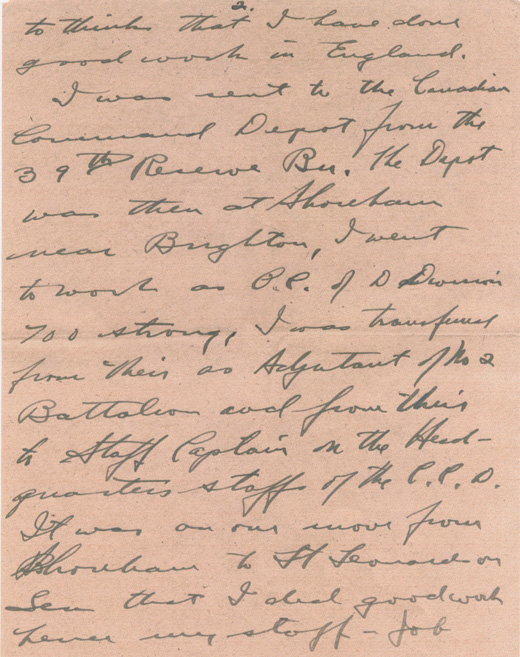 2.
to think that I have done
good work in England.
I was sent to the Canadian
Command Depot from the
39th Reserve Bn. the Depot
was then at Shoreham
near Brighton, I went
to work as O.C. of D Division
700 strong, I was transfered
from their as Adjutant of No 2
Battalion and from their
to Staff Captain on the Head-
quarters staffs of the C.C.D.
It was on our move from
Shoreham to St Leonard on
Sea that I did good work
hence my staff - Job